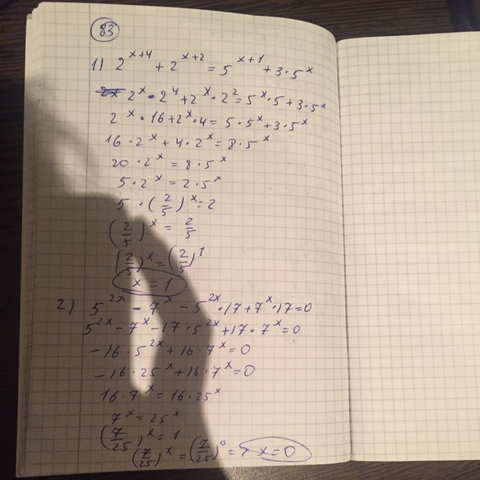 83
1) 2^{x+4} + 2^{x+2} = 5^{x+1} + 3·5^x
2^x·2^4 + 2^x·2^2 = 5^x·5 + 3·5^x
2^x·16 + 2^x·4 = 5·5^x + 3·5^x
16·2^x + 4·2^x = 8·5^x
20·2^x = 8·5^x
5·2^x = 2·5^x
5·(2/5)^x = 2
(2/5)^x = 2/5
(2/5)^x = (2/5)^1
x = 1
2) 5^{2x} - 7^x - 5^{2x}·17 + 7^x·17 = 0
5^{2x} - 7^x - 17·5^{2x} + 17·7^x = 0
-16·5^{2x} + 16·7^x = 0
-16·25^x + 16·7^x = 0
16·7^x = 16·25^x
7^x = 25^x
(7/25)^x = 1
(7/25)^x = (7/25)^0 => x = 0